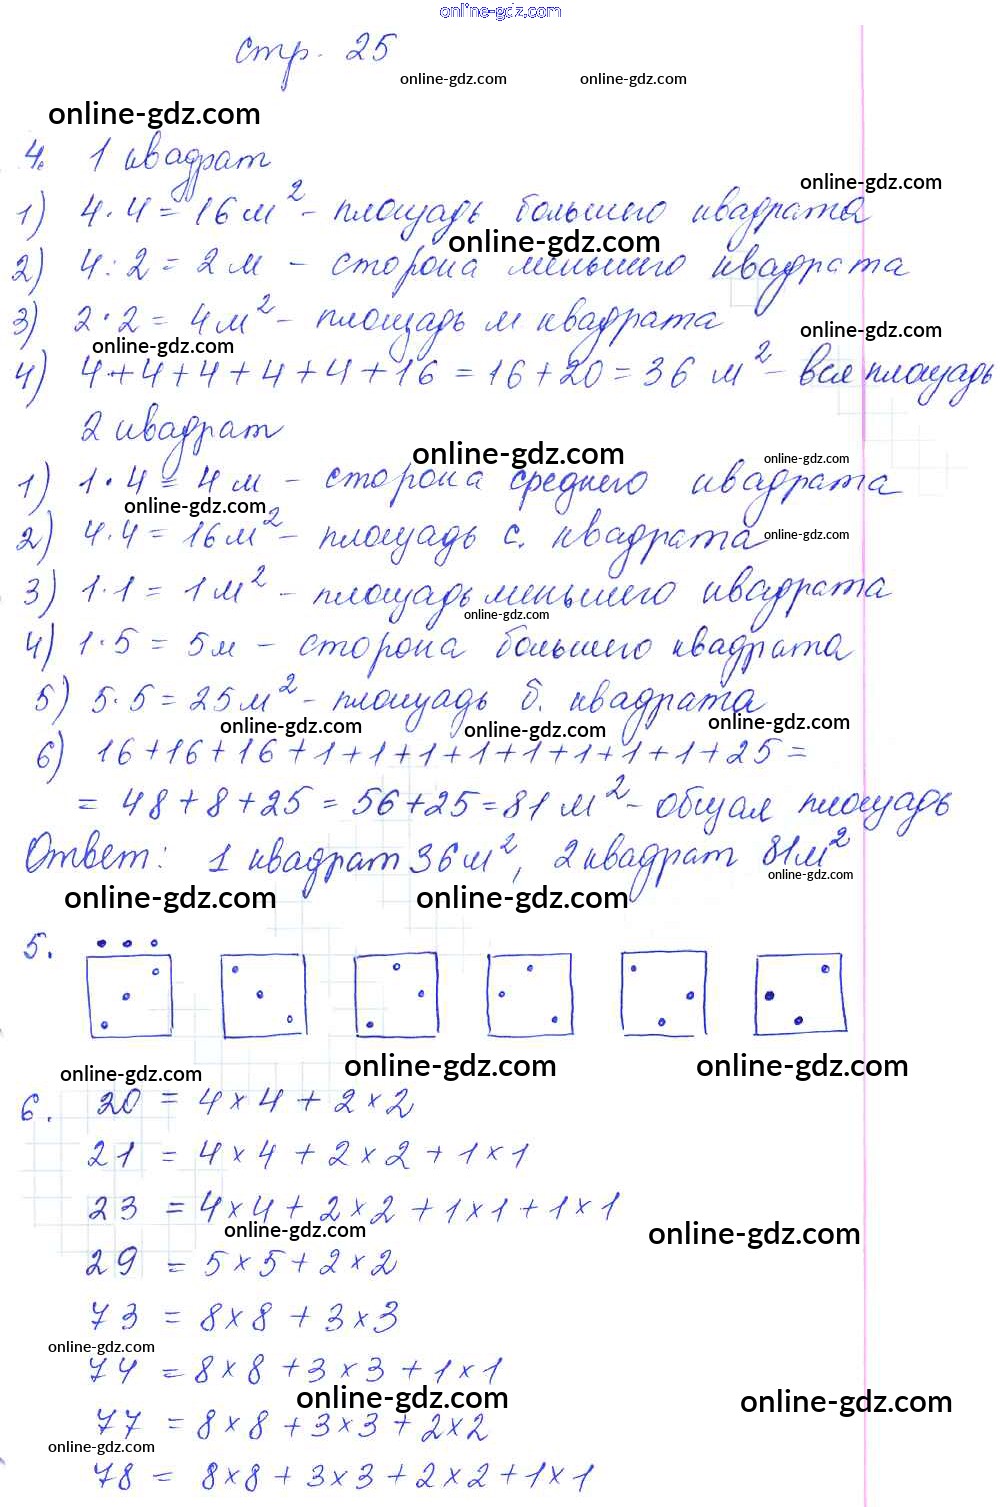 online-gdz.com
стр. 25
online-gdz.com online-gdz.com
online-gdz.com
4. 1 квадрат
online-gdz.com
1) 4·4=16м²- площадь большего квадрата
online-gdz.com
2) 4:2=2м - сторона меньшего квадрата
3) 2·2=4м²- площадь м квадрата
online-gdz.com online-gdz.com
4) 4+4+4+4+4+16=16+20=36 м²- вся площадь
2 квадрат
online-gdz.com online-gdz.com
1) 1·4=4м - сторона среднего квадрата
online-gdz.com
2) 4·4=16м²- площадь с. квадрата
online-gdz.com
3) 1·1=1м² - площадь меньшего квадрата
online-gdz.com
4) 1·5=5м - сторона большего квадрата
5) 5·5=25м²- площадь б. квадрата
online-gdz.com online-gdz.com online-gdz.com
6) 16+16+16+1+1+1+1+1+1+1+1+25=
=48+8+25=56+25=81м²- общая площадь
Ответ: 1 квадрат 36м², 2 квадрат 81м²
online-gdz.com
online-gdz.com online-gdz.com
5.
online-gdz.com online-gdz.com online-gdz.com
6. 20 = 4×4+2×2
21 = 4×4+2×2+1×1
23 = 4×4+2×2+1×1+1×1
online-gdz.com online-gdz.com
29 = 5×5+2×2
73 = 8×8+3×3
online-gdz.com
74 = 8×8+3×3+1×1
online-gdz.com online-gdz.com
77 = 8×8+3×3+2×2
online-gdz.com
78 = 8×8+3×3+2×2+1×1